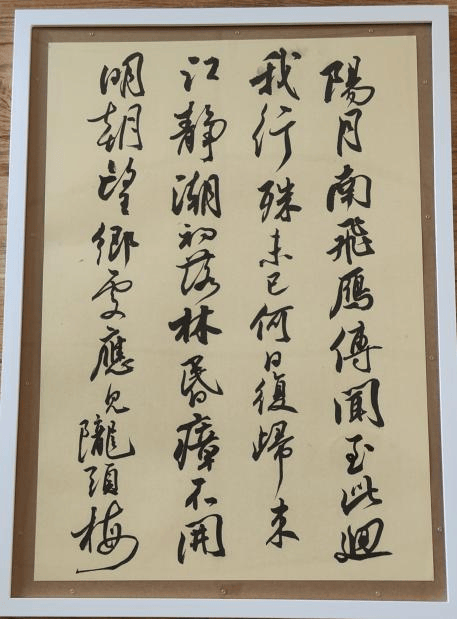 陽月南飛雁傳聞至此迴
我行殊未已何日復歸來
江靜潮初落林昏瘴不開
明朝望鄉處應見隴頭梅